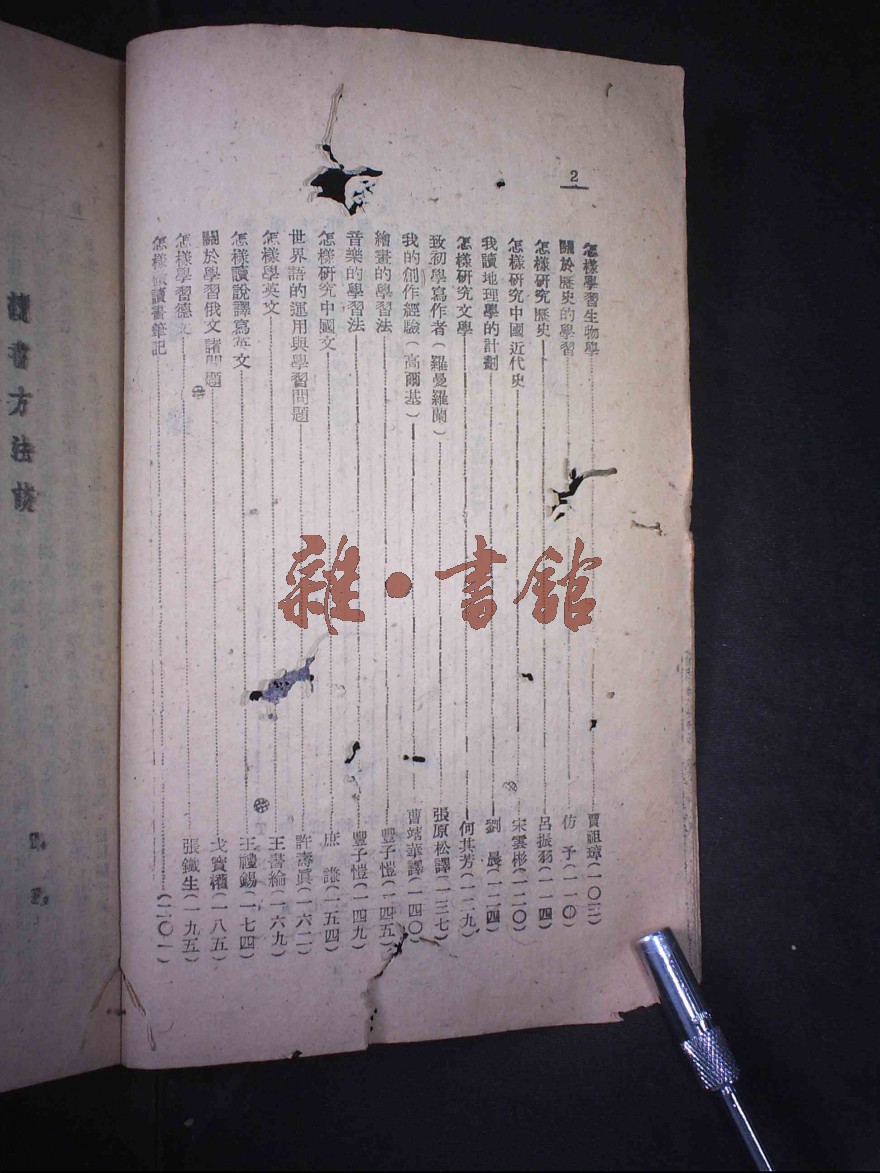 2
怎樣學習生物學 賈祖璋(一〇三)
關於歷史的學習 仿予(一一〇)
怎樣研究歷史 呂振羽(一一四)
怎樣研究中國近代史 宋雲彬(一二〇)
我讀地理學的計劃 劉晨(一二四)
怎樣研究文學 何其芳(一二九)
致初學寫作者(羅曼羅蘭) 張原松譯(一三七)
我的創作經驗(高爾基) 曹靖華譯(一四〇)
繪畫的學習法 豐子愷(一四五)
音樂的學習法 豐子愷(一四九)
怎樣研究中國文 庶謙(一五四)
世界語的運用與學習問題 許壽眞(一六二)
怎樣學英文 王書綸(一六九)
怎樣讀說譯寫英文 王禮錫(一七四)
關於學習俄文諸問題 戈寶權(一八五)
怎樣學習德文 張鐵生(一九五)
怎樣做讀書筆記 (二〇一)
讀書方法談
雜·書館